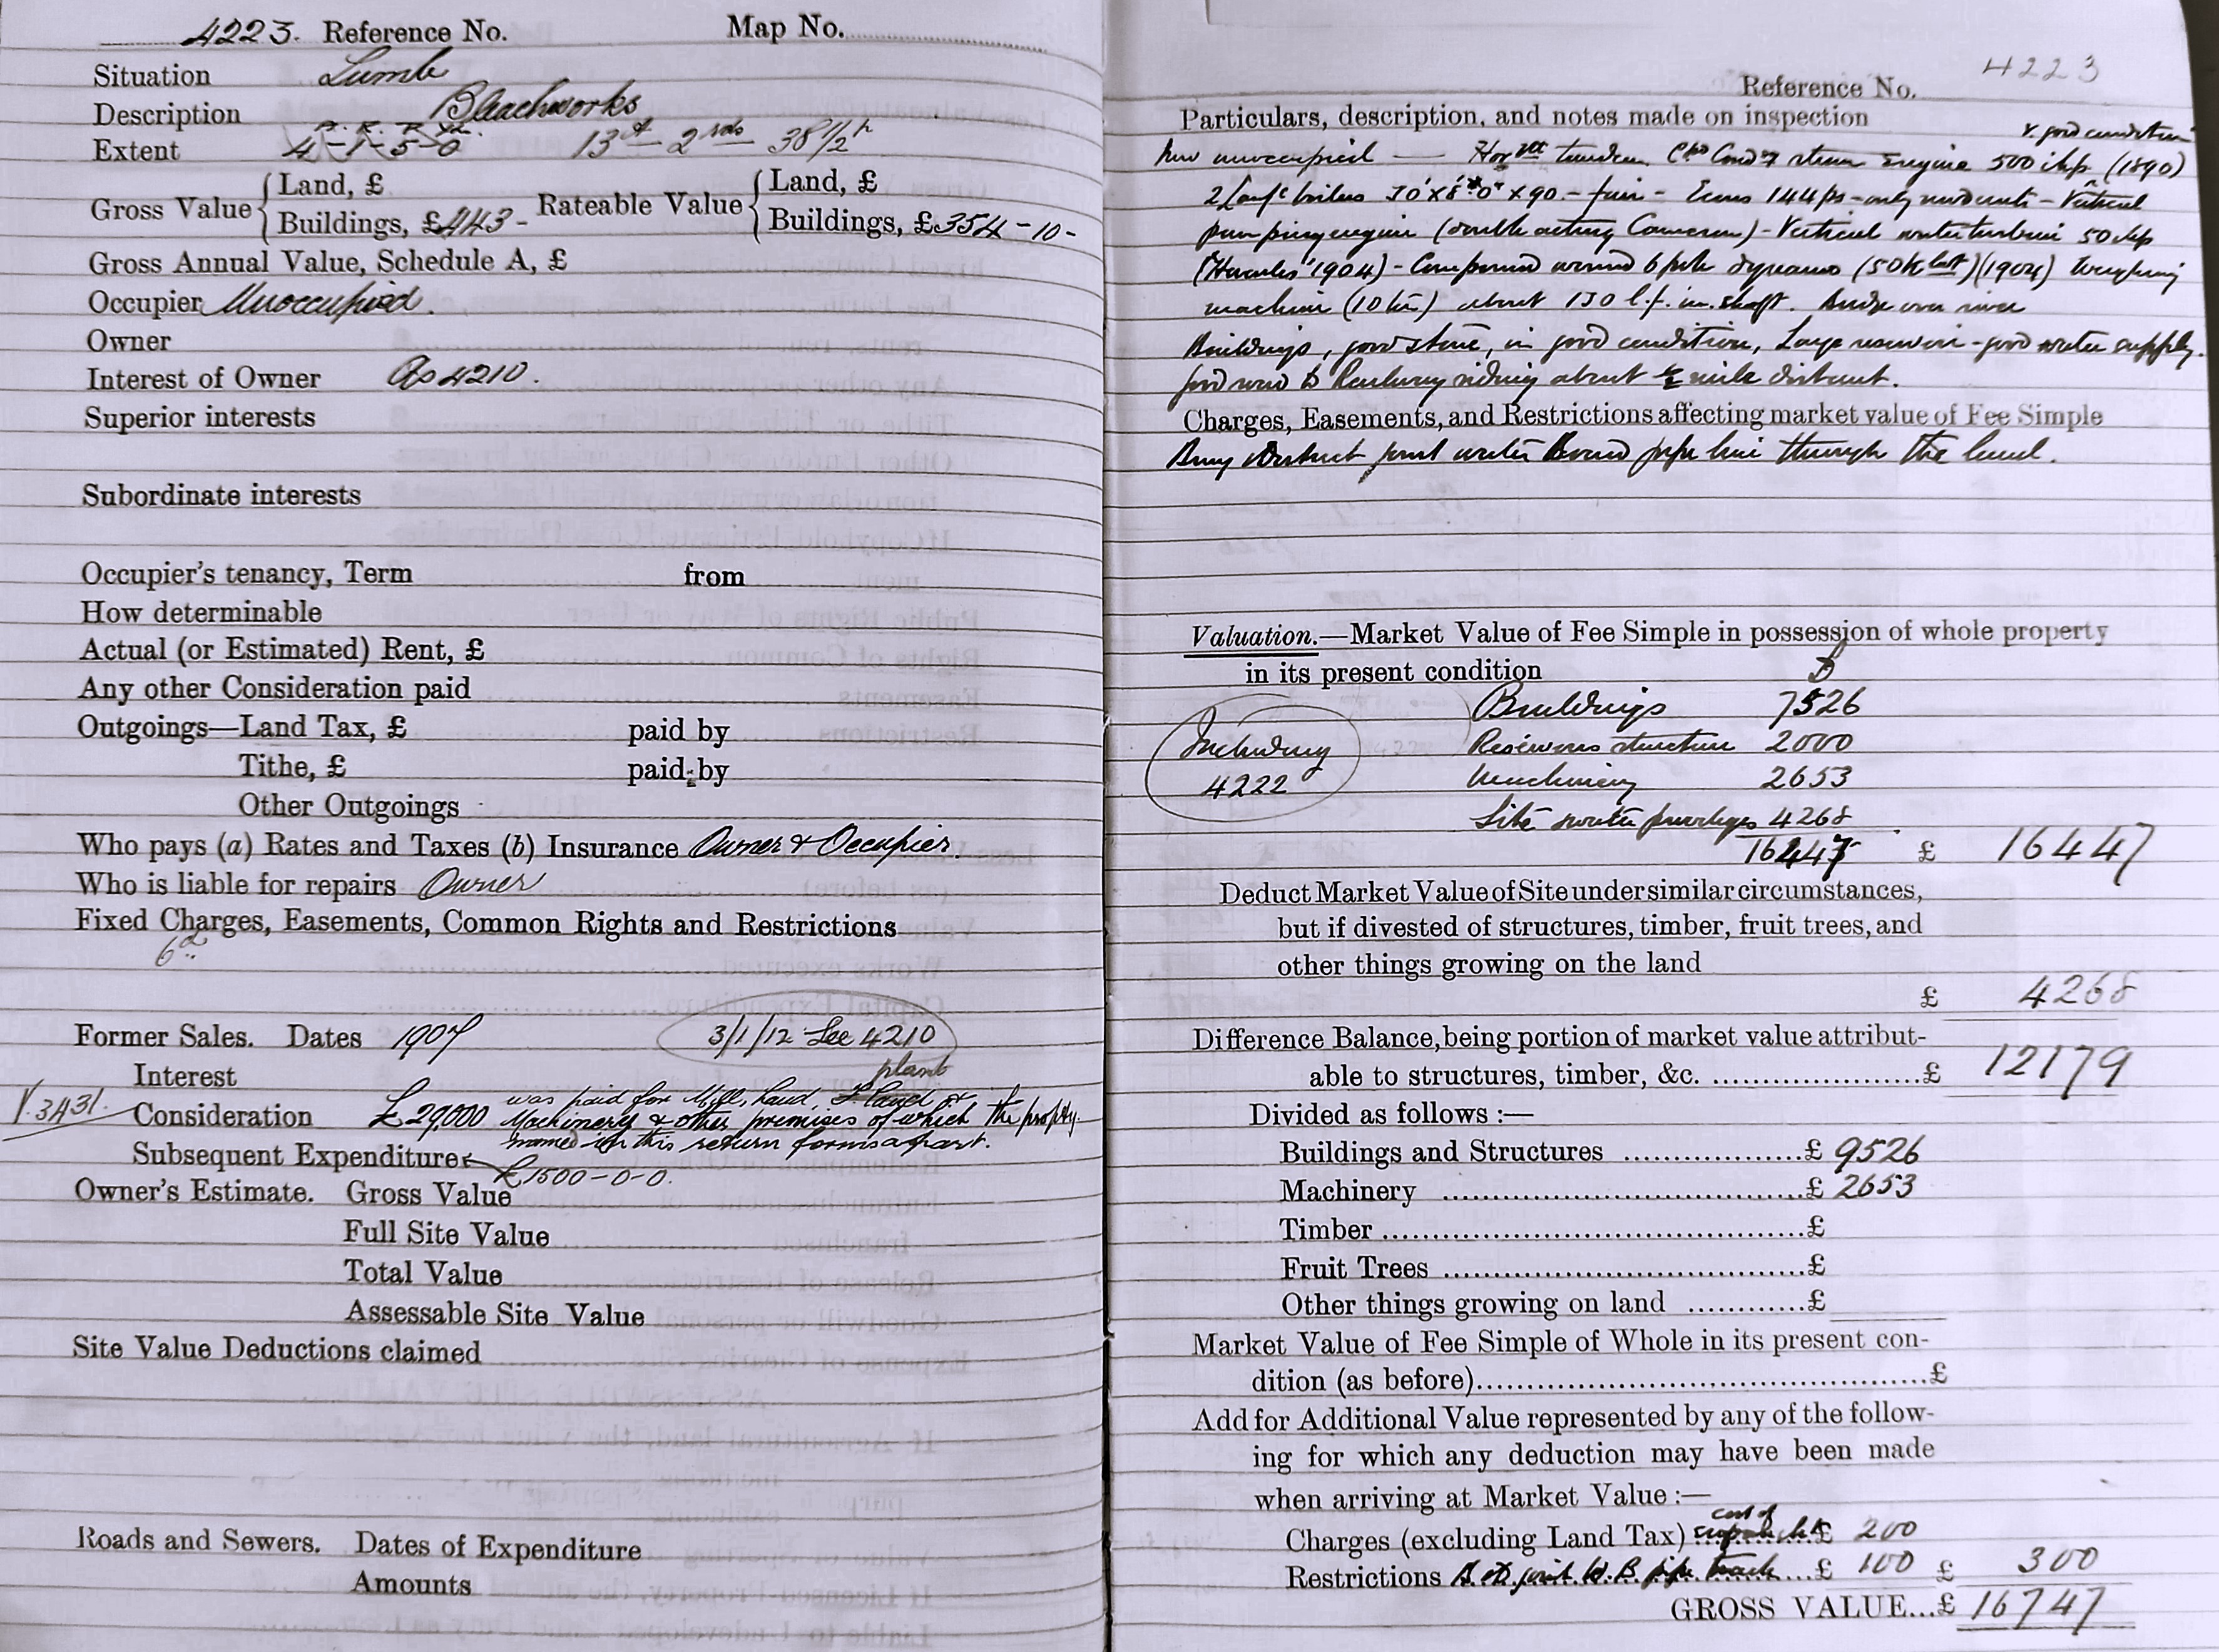 4223. Reference No. Map No.
Situation Lumb
Description Bleachworks
A. R. P. Yd.
Extent 4-1-5-0 13A - 2 rds 38 1/2 P
Gross Value { Land, £ Rateable Value { Land, £
Buildings, £443- Buildings, £354-10-
Gross Annual Value, Schedule A, £
Occupier Unoccupied.
Owner
Interest of Owner As 4210.
Superior interests
Subordinate interests
Occupier's tenancy, Term from
How determinable
Actual (or Estimated) Rent, £
Any other Consideration paid
Outgoings—Land Tax, £ paid by
Tithe, £ paid by
Other Outgoings
Who pays (a) Rates and Taxes (b) Insurance Owner & Occupier.
Who is liable for repairs Owner
Fixed Charges, Easements, Common Rights and Restrictions
6d
Former Sales. Dates 1907 3/1/12 See 4210
Interest plant
V.3431. Consideration £29,000 was paid for Mill, Land, &
Machinery & other premises of which the propty.
named in this return forms a part.
Subsequent Expenditure £1500-0-0.
Owner's Estimate. Gross Value
Full Site Value
Total Value
Assessable Site Value
Site Value Deductions claimed
Roads and Sewers. Dates of Expenditure
Amounts
Reference No. 4223
Particulars, description, and notes made on inspection
v. good condition
Now unoccupied — Horztl tandem Cpd Condg steam Engine 500 ihp (1890)
2 Lancs boilers 30' x 8'0" x 90 - fair - Econs 144 ps - only moderate - Vertical
pumping engine (double acting Cameron) - Vertical water turbine 50 ihp
(Hercules 1904) - Compound wound 6 pole dynamo (50K) (1904) Weighing
machine (10 tn) about 130 l.f. in. shaft. Bridge over river
Buildings, good stone, in good condition, Large reservoir - good water supply.
good road to Railway siding about 1/2 mile distant.
Charges, Easements, and Restrictions affecting market value of Fee Simple
Bury District joint water Board pipe line through the land.
Valuation.—Market Value of Fee Simple in possession of whole property
in its present condition £
Buildings 7526
Including Reservoirs structure 2000
4222 Machinery 2653
Site & water privileges 4268
16447 £ 16447
Deduct Market Value of Site under similar circumstances,
but if divested of structures, timber, fruit trees, and
other things growing on the land
£ 4268
Difference Balance, being portion of market value attribut-
able to structures, timber, &c. £ 12179
Divided as follows :—
Buildings and Structures £ 9526
Machinery £ 2653
Timber £
Fruit Trees £
Other things growing on land £
Market Value of Fee Simple of Whole in its present con-
dition (as before) £
Add for Additional Value represented by any of the follow-
ing for which any deduction may have been made
when arriving at Market Value :—
cost of
Charges (excluding Land Tax) £ 200
Restrictions B. Dt joint W. B pipe track £ 100 £ 300
GROSS VALUE...£ 16747